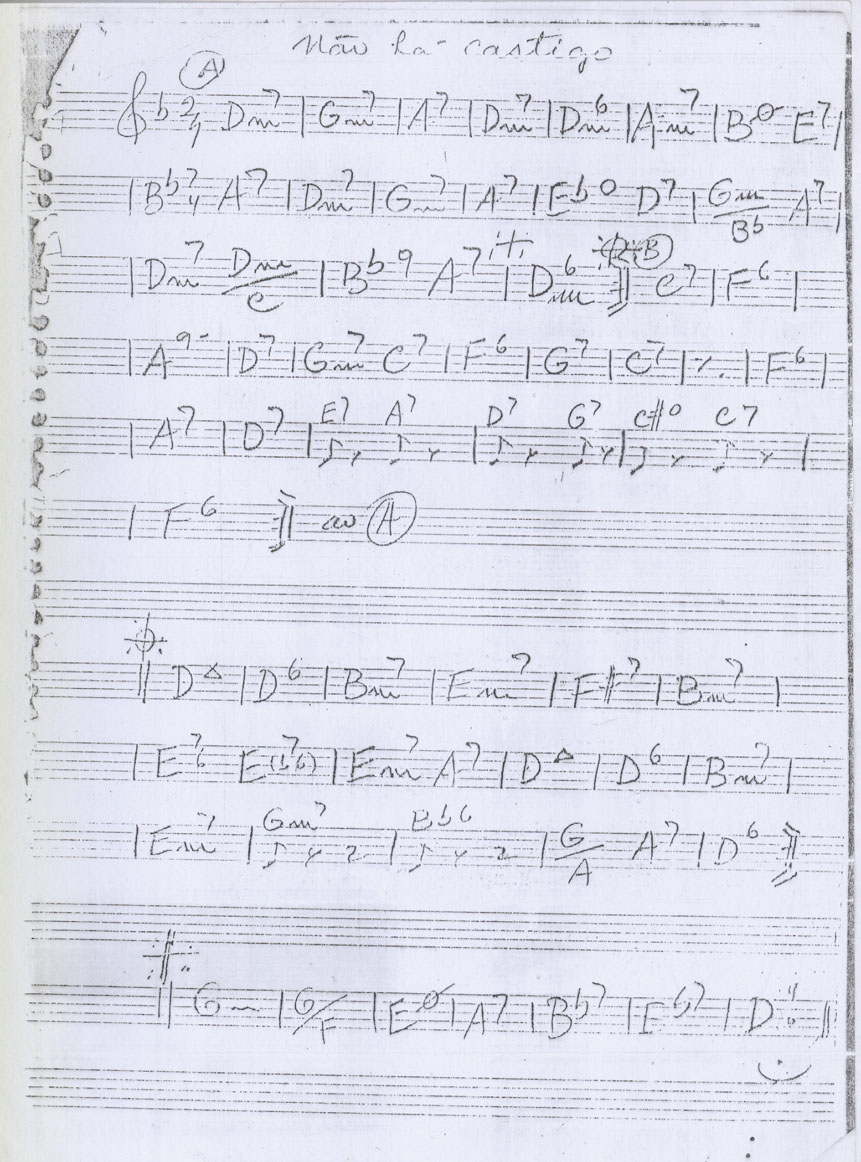 Não há castigo
A
2/4 Dm7 | Gm7 | A7 | Dm7 | Dm6 | Am7 | Bø E7 |
| Bb7 A7 | Dm7 | Gm7 | A7 | Ebo D7 | Gm/Bb A7 |
B
| Dm7 Dm/C | Bb9 A7 | Dm6 || C7 | F6 |
| A9- | D7 | Gm7 C7 | F6 | G7 | C7 | ٪ | F6 |
E7 A7 D7 G7 C#o C7
| A7 | D7 | | | |
| F6 || ao A
|| D△ | D6 | Bm7 | Em7 | F#7 | Bm7 |
| E7 6 E7(b6) | Em7 A7 | D△ | D6 | Bm7 |
Gm7 Bb6
| Em7 | | | G/A A7 | D6 ||
|| Gm | G/F | Eø | A7 | Bb7 | Eb7 | D ||